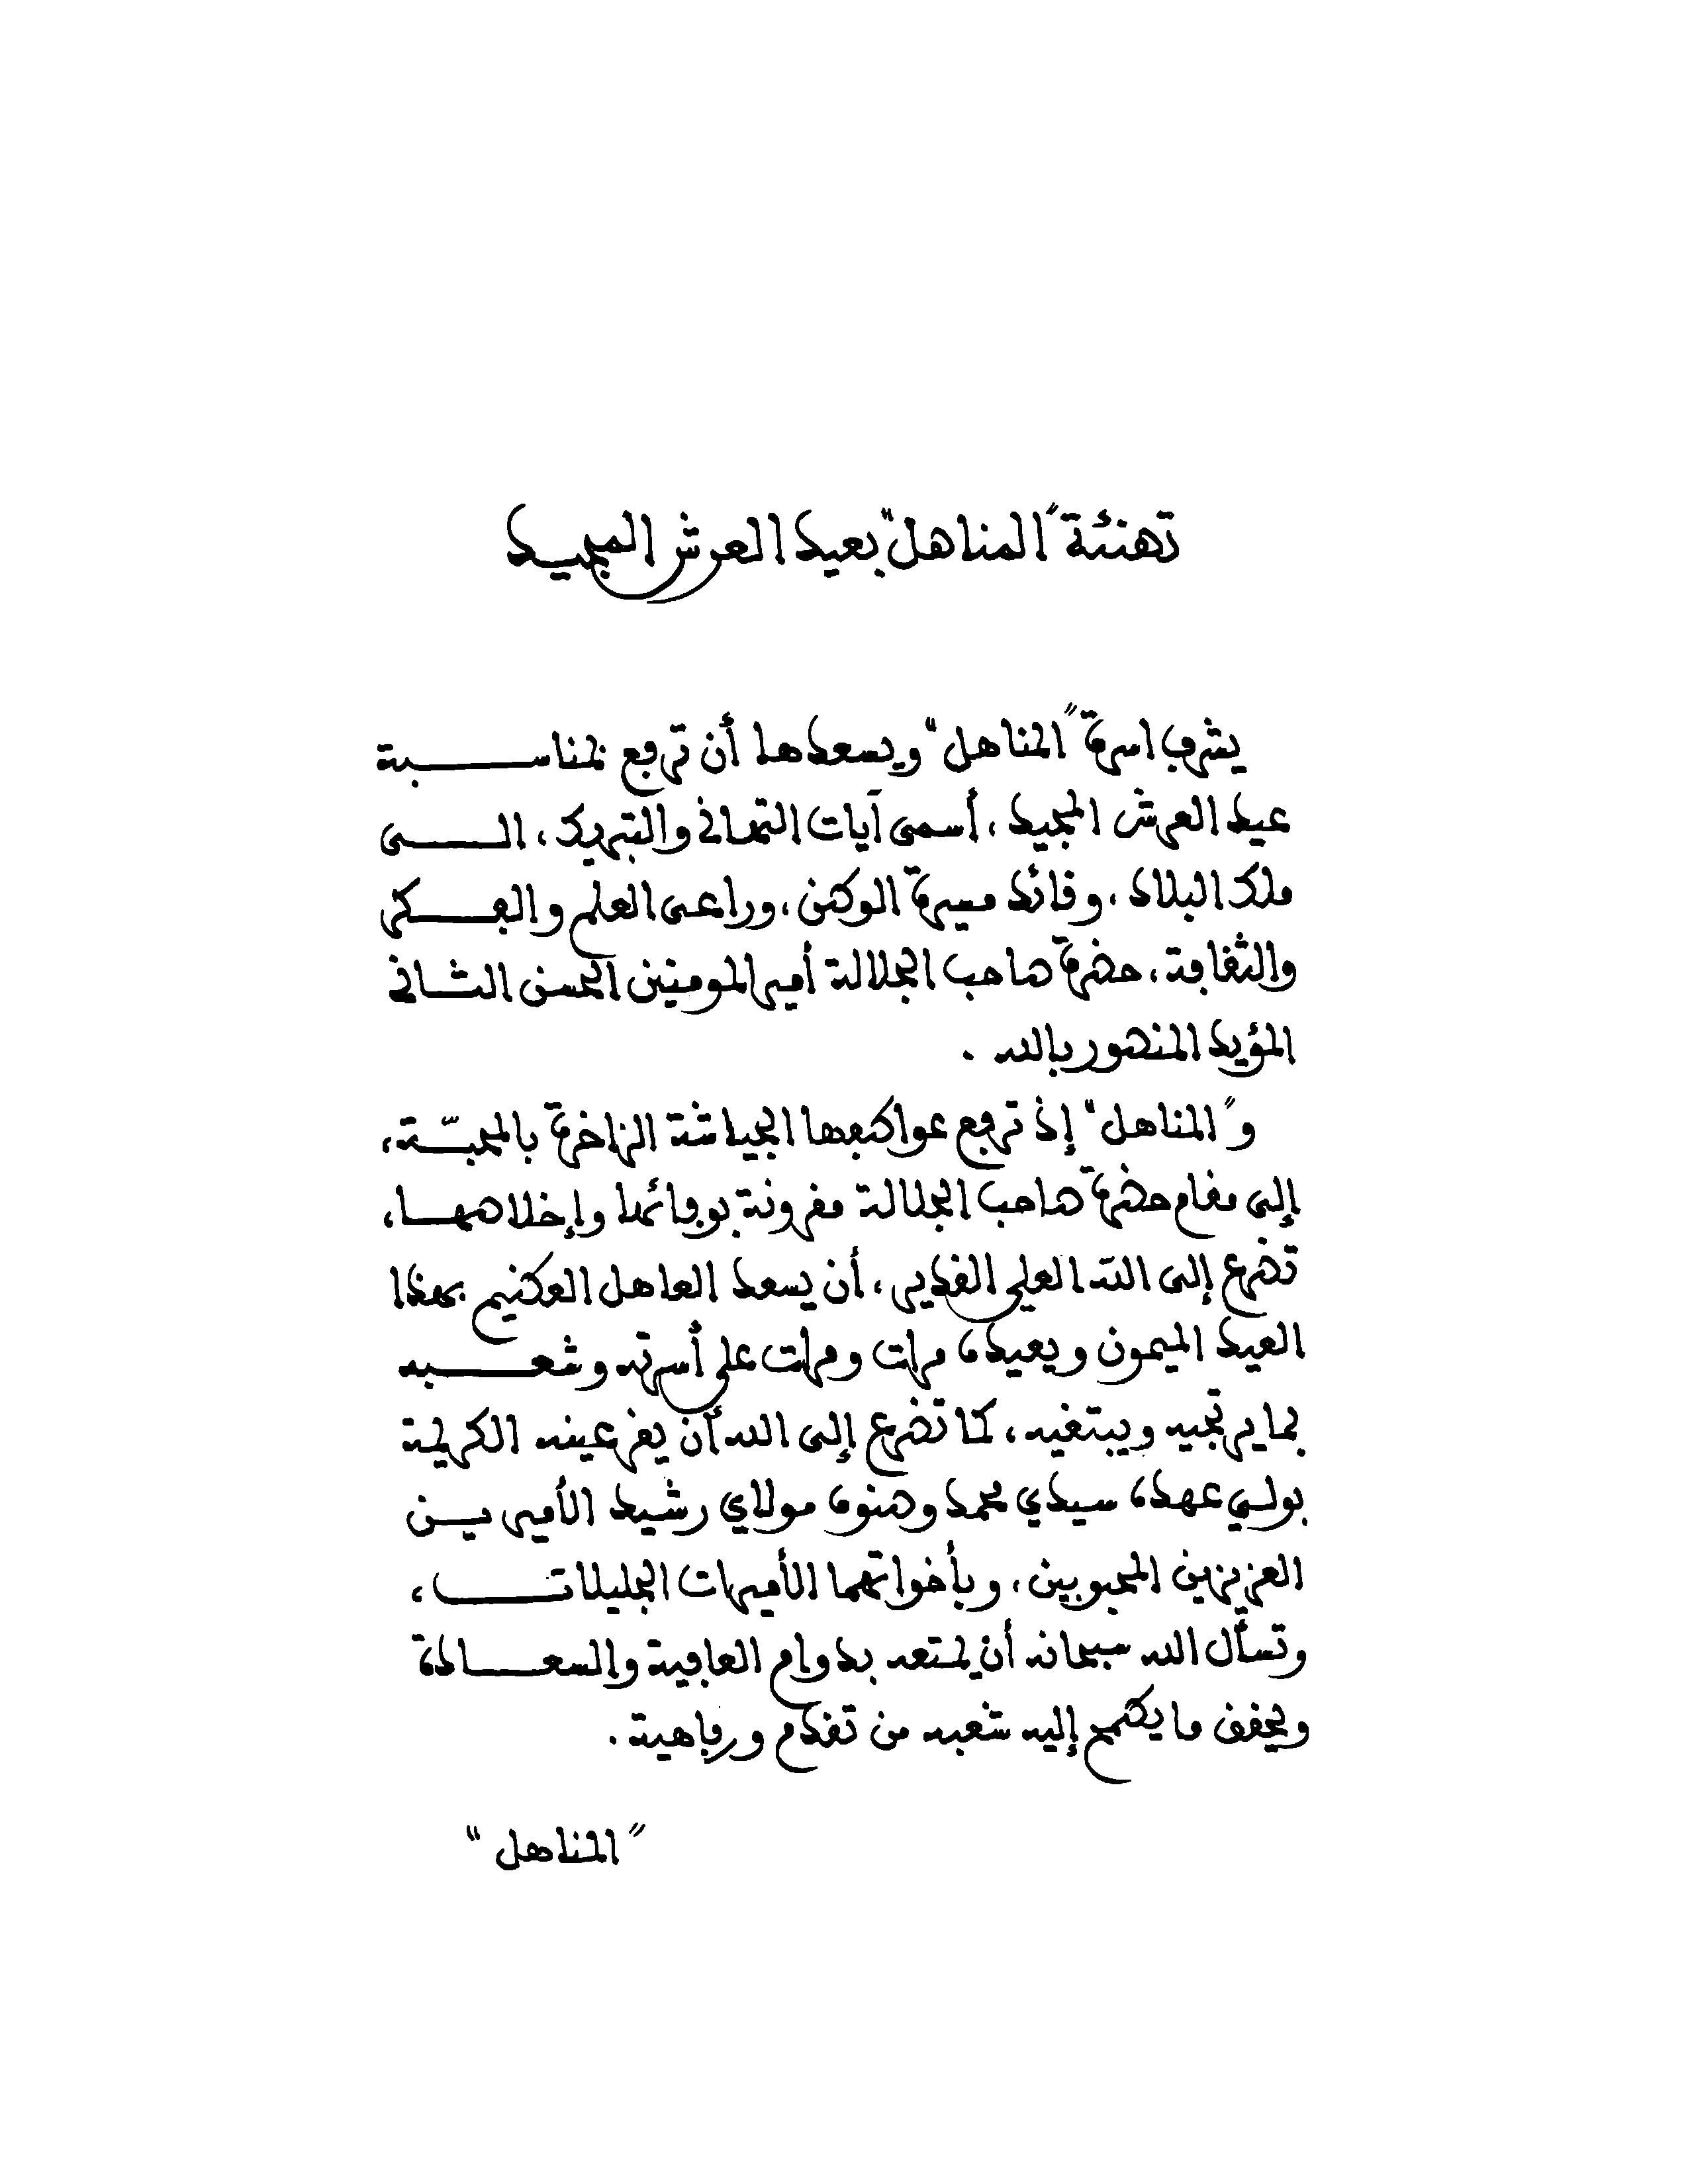 تهنئة "المناهل" بعيد العرش المجيد
يشرف اسرة "المناهل" ويسعدها أن ترفع بمناسبة
عيد العرش المجيد، أسمى آيات التهاني والتبريك، الى
ملك البلاد، وقائد مسيرة الوطن، وراعي العلم والفكر
والثقافة، حضرة صاحب الجلالة أمير المومنين الحسن الثاني
المؤيد المنصور بالله .
و"المناهل" إذ ترفع عواطفها الجياشة الزاخرة بالمحبّة،
إلى مقام حضرة صاحب الجلالة مقرونة بوفائها وإخلاصها،
تضرع إلى الله العلي القدير، أن يسعد العاهل العظيم بهذا
العيد الميمون ويعيده مرات ومرات على أسرته وشعبه
بما يرتجيه ويبتغيه، كما تضرع إلى الله أن يقر عينه الكريمة
بولي عهده سيدي محمد وصنوه مولاي رشيد الأميرين
العزيزين المحبوبين، وبأخواتهما الأميرات الجليلات،
وتسأل الله سبحانه أن يمتعه بدوام العافية والسعادة
ويحقق ما يطمح إليه شعبه من تقدم ورفاهية .
"المناهل"